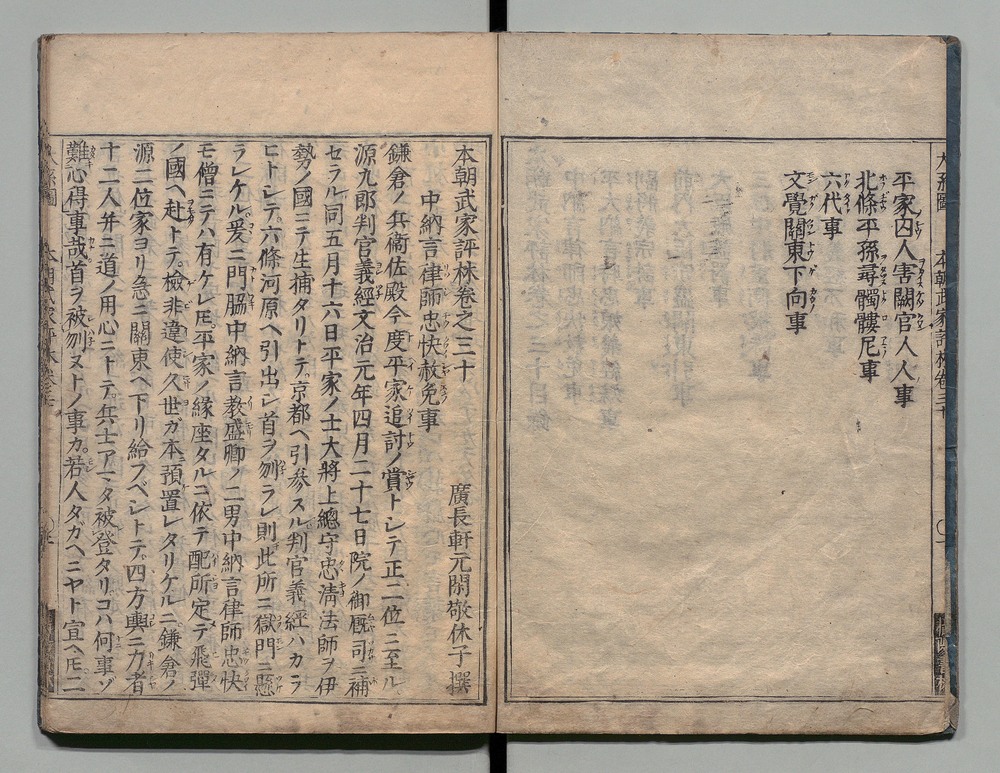 平家囚人害關官人人事
北條平孫尋髑髏尼事
六代事
文覺關東下向事
本朝武家評林卷之三十
廣長軒元閑敬休子撰
中納言律師忠快赦免事
鎌倉ノ兵衞佐殿今度平家追討ノ賞トシテ正二位ニ至ル
源九郎判官義經文治元年四月二十七日院ノ御厩司ニ補
セラル同五月十六日平家ノ士大將上總守忠淸法師ヲ伊
勢ノ國ニテ生捕タリトテ京都ヘ引參スル判官義經ハカラ
ヒトシテ六條河原ヘ引出シ首ヲ刎ラレ則此所ニ獄門ニ懸
ラレケル爰ニ門脇中納言教盛卿ノ二男中納言律師忠快
モ僧ニテハ有ケレ𪜈平家ノ緣座タルヿ依テ配所定テ飛彈
ノ國ヘ赴トテ檢非違使久世ガ本預置レタリケルニ鎌倉ノ
源二位家ヨリ急ニ關東ヘ下リ給フベシトテ四方輿ニ力者
十二人并ニ道ノ用心ニトテ兵士アマタ被登タリコハ何事ゾ
難心得事哉首ヲ被刎ヌトノ事カ若人タガヘニヤト宣ヘ𪜈二